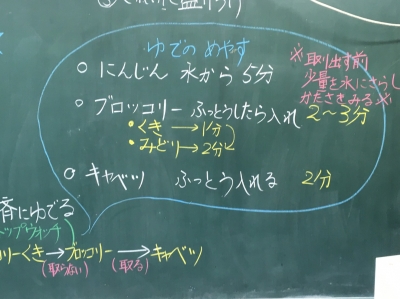 ③ 盛り
ゆでの めやす
○ にんじん 水から 5分
※取り出す前
少量を水にさらし
かたさをみる※
○ ブロッコリー ふっとうしたら入れ 2〜3分
・くき → 1分
・みどり → 2分
○ キャベツ ふっとう入れる 2分
にゆでる
ップウォッチ
リーくき → ブロッコリー → キャベツ
(取らない) (取る)